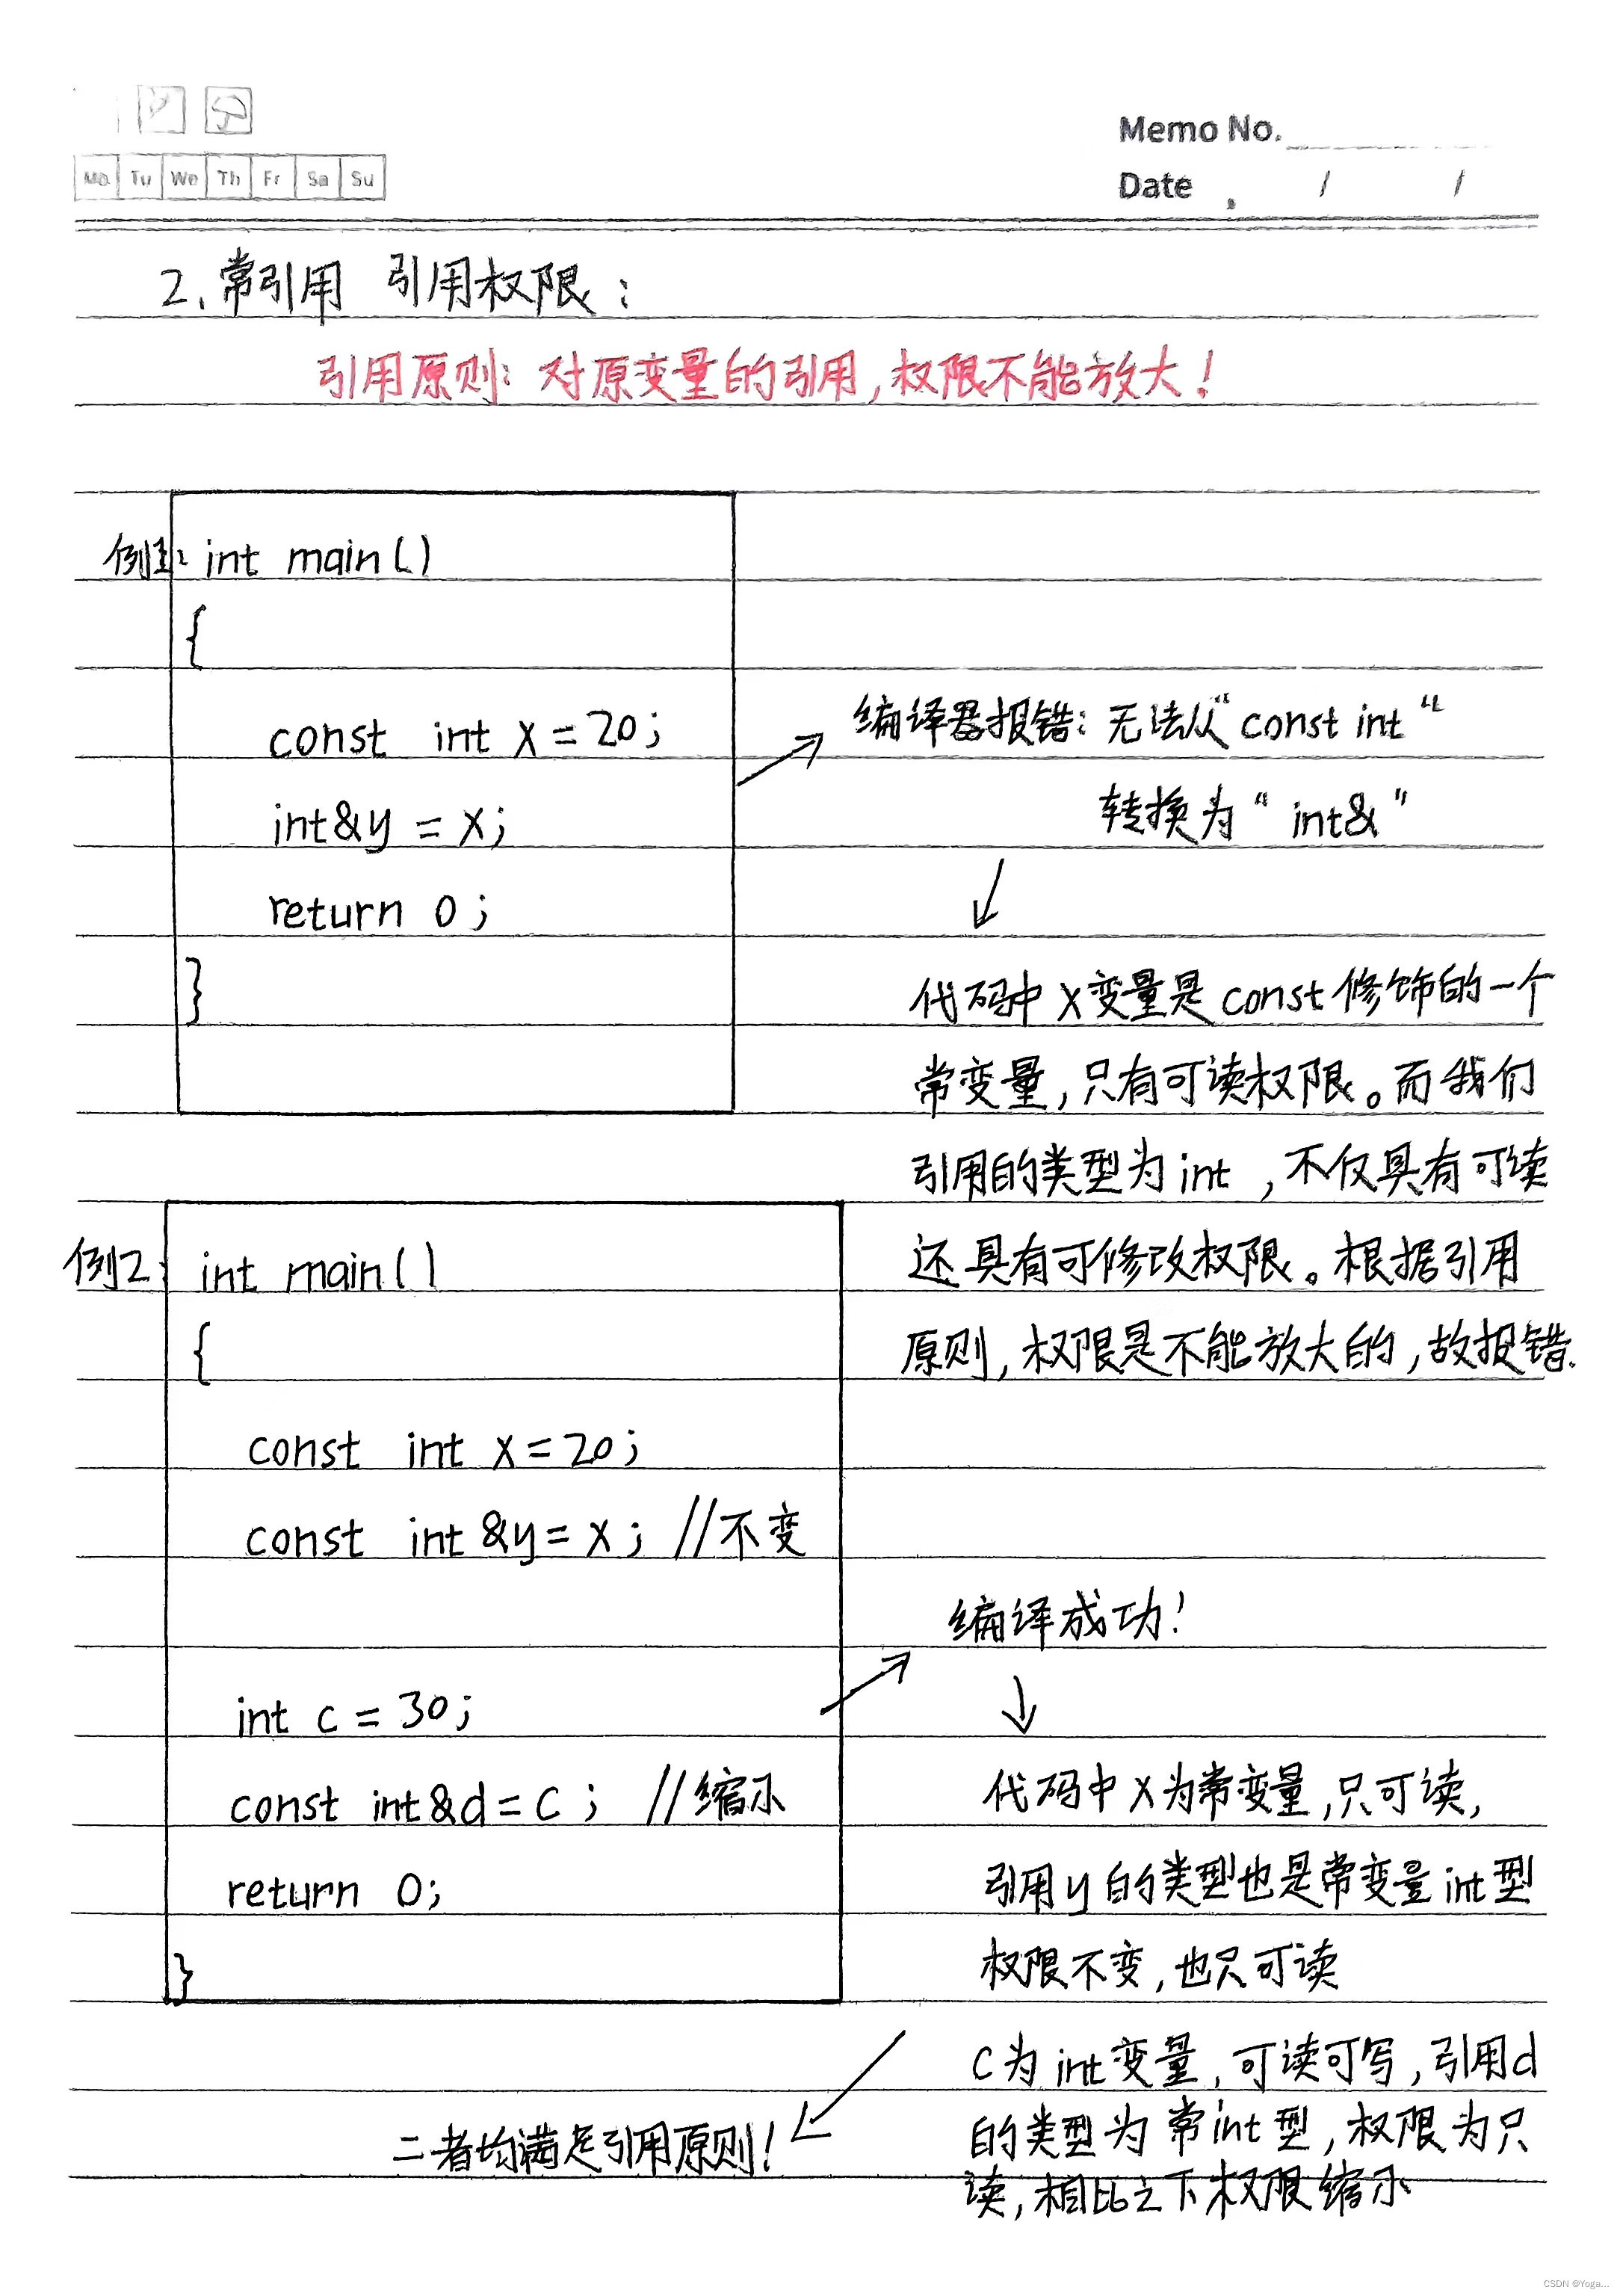 Memo No.
Mo Tu We Th Fr Sa Su
Date / /
2、常引用 引用权限：
引用原则：对原变量的引用，权限不能放大！
例1： int main()
{
const int x = 20;
int&y = x;
return 0;
}
编译器报错：无法从“const int“
转换为“int&”
代码中x变量是const修饰的一个
常变量，只有可读权限。而我们
引用的类型为int，不仅具有可读
还具有可修改权限。根据引用
原则，权限是不能放大的，故报错.
例2： int main()
{
const int x = 20;
const int &y = x; //不变
int c = 30;
const int&d = c; //缩小
return 0;
}
编译成功！
代码中x为常变量，只可读，
引用y的类型也是常变量int型
权限不变，也只可读
c为int变量，可读可写，引用d
的类型为常int型，权限为只
读，相比之下权限缩小
二者均满足引用原则！
CSDN @Yoga...